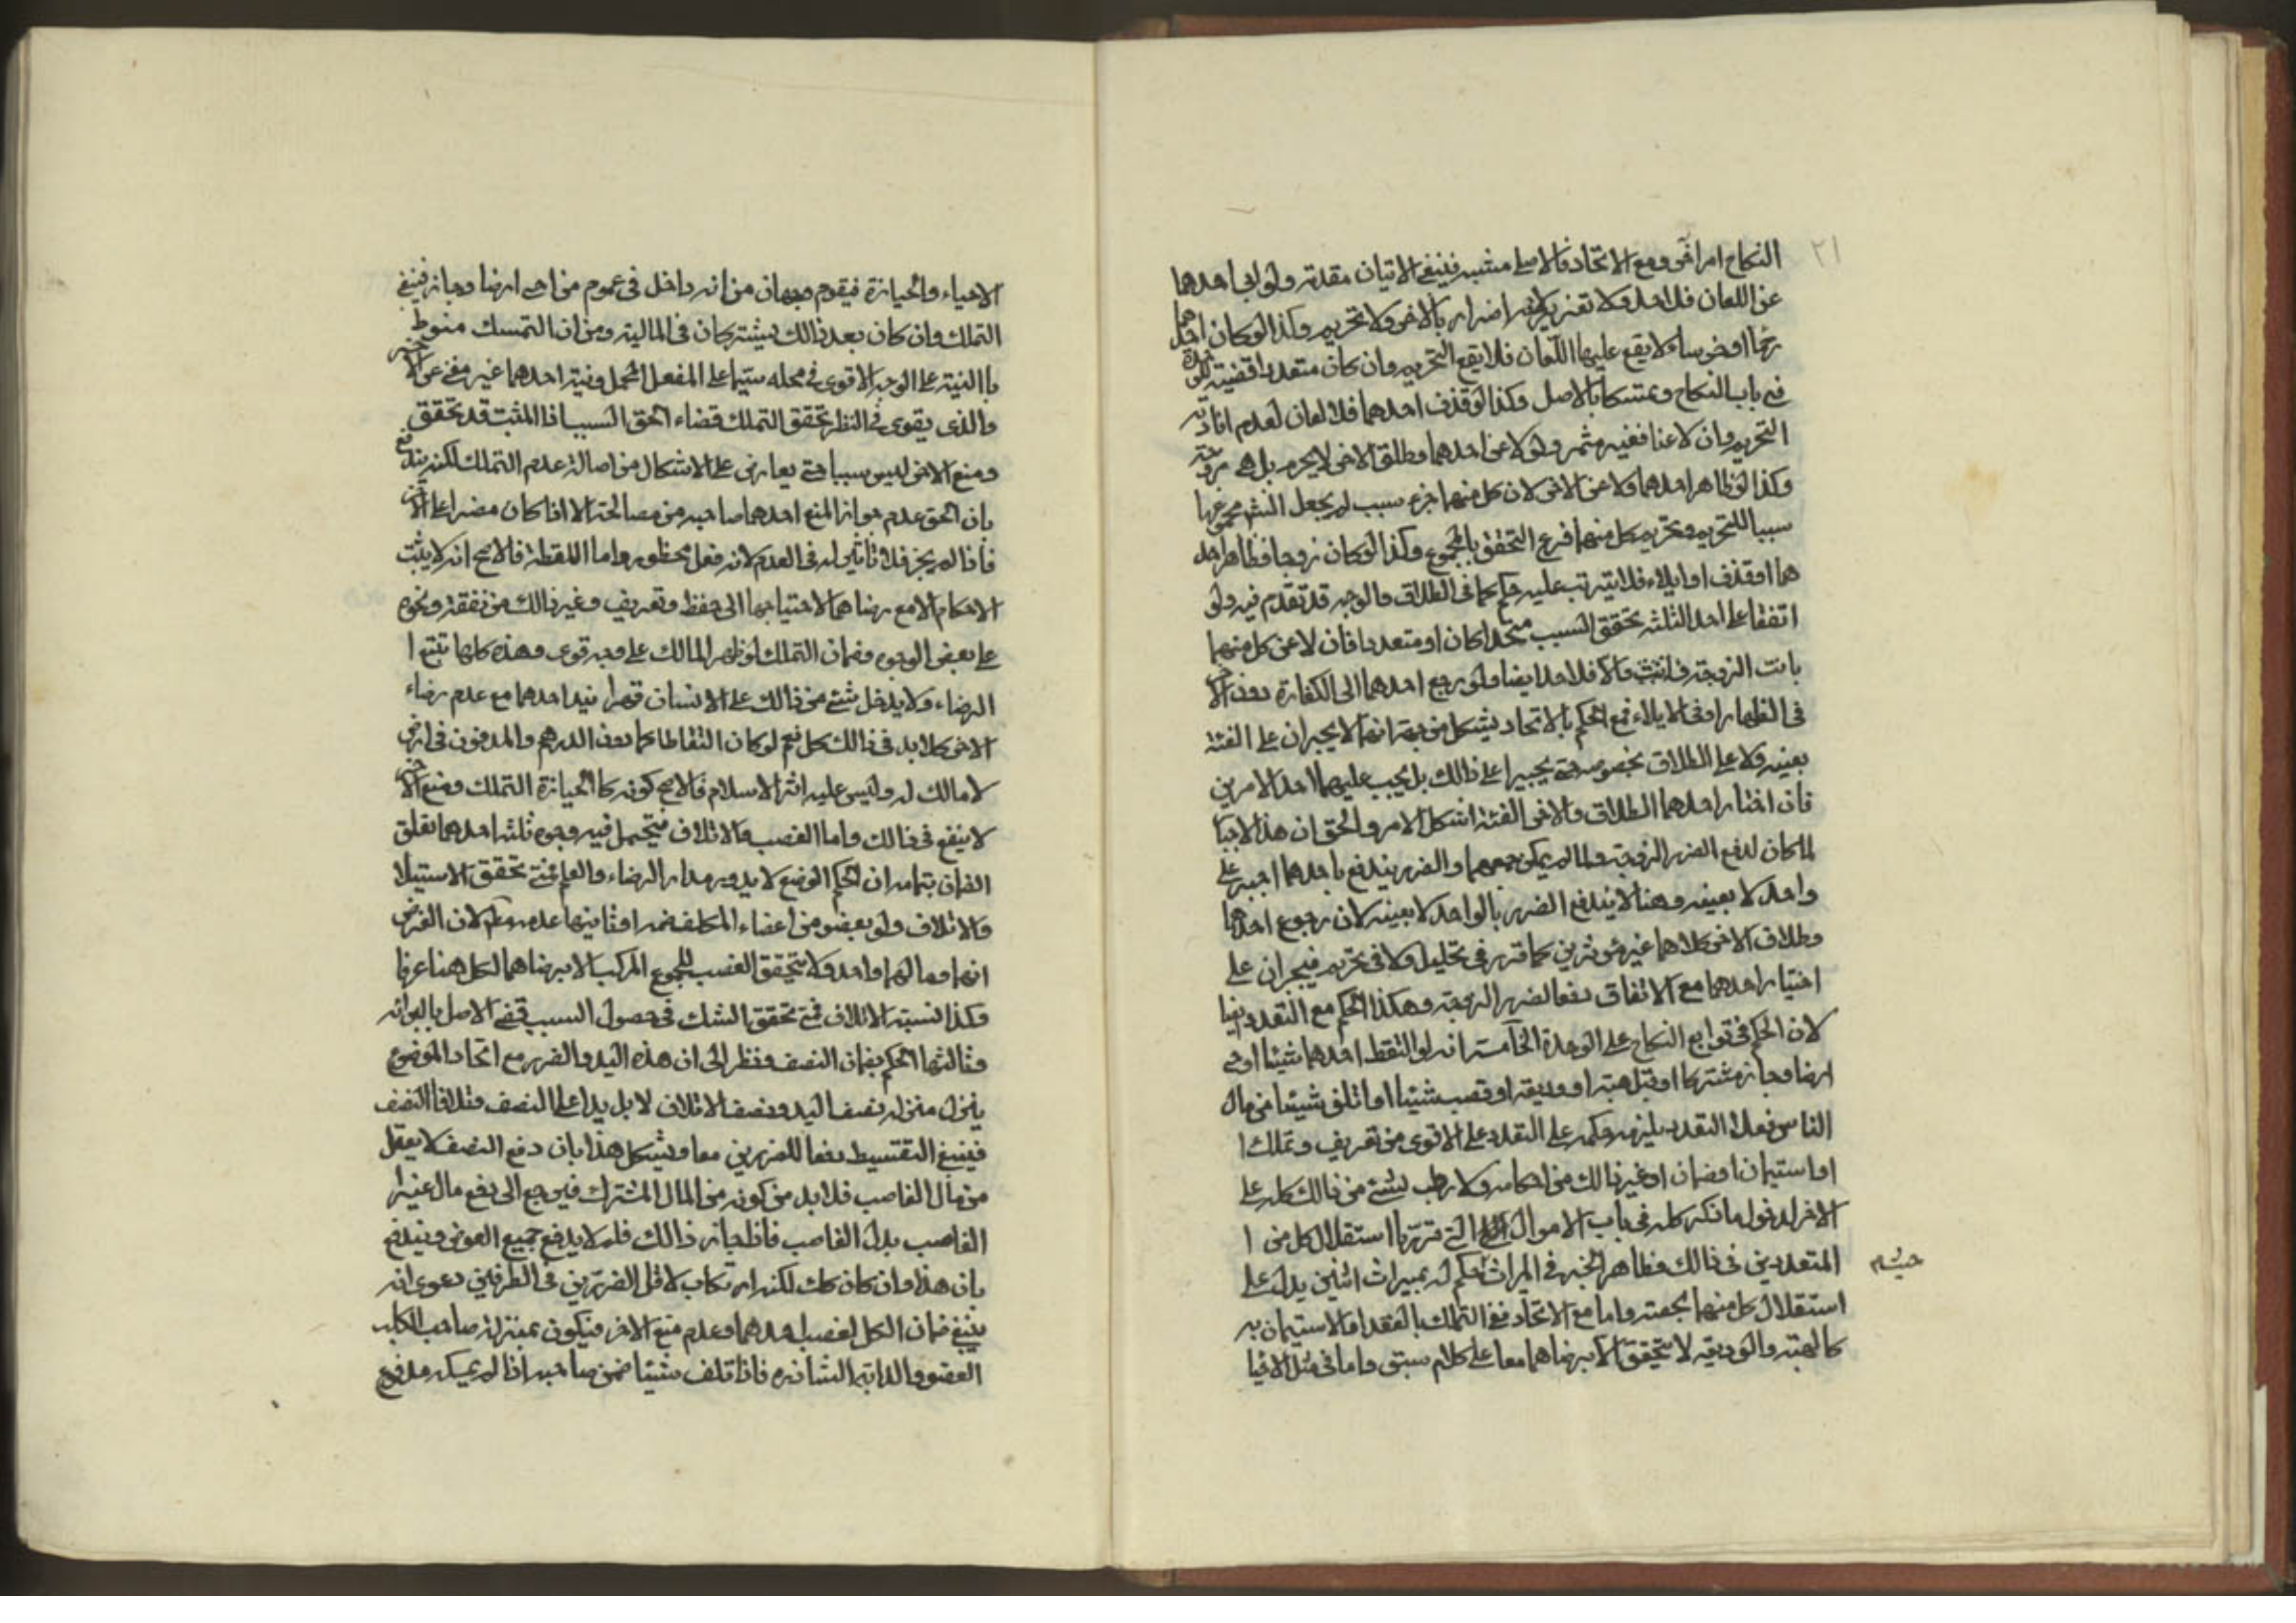 ٢١
النكاح امر اخر ومع الاتحاد فالاصل مشبه فينبغي الاتيان مقدمة ولو ابى احدهما
عن اللعان فلا حد ولا تعزير لانه اضرار بالاخر ولا تحريم وكذا لو كان احدهما
او خرساء لا يقع عليها اللعان فلا يقع التحريم وان كان متعددا قضية للوحدة
في باب النكاح وتمسكا بالاصل وكذا لو قذف احدهما فلا لعان لعدم افادته
التحريم وان لاعنا ففيه مثمر ولو لاعن احدهما وطلق الاخر لا يحرم بل هي زوجة
وكذا لو ظاهر احدهما ولاعن الاخر لان كل منهما جزء سبب لم يجعل الشرع مجموعها
سببا للتحريم وتحريم كل منهما فرع التحقق بالمجموع وكذا لو كان زوجا فظاهر احد
هما او قذف او ايلاء فلا يترتب عليه حكم كما في الطلاق والوجه قد تقدم فيه ولو
اتفقا على احد الثلثة تحقق السبب متحدا كان او متعددا فان لاعن كل منهما
بانت الزوجة والا فلا حد ايضا ولو رجع احدهما الى الكفارة دون الاخر
في الظهار او في الايلاء فمع الحكم بالاتحاد يشكل من جهة انهما لا يجبران على الفئة
بعينه ولا على الطلاق بخصوصه حتى يجبرا على ذالك بل يجب عليهما احد الامرين
فان اختار احدهما الطلاق والاخر الفئة اشكل الامر والحق ان هذا الاجبا
لما كان لدفع الضرر الزوجة ولما لم يمكن جمعهما والضرر يندفع باحدهما اجبر على
واحد لا بعينه وهنا لا يندفع الضرر بالواحد لا بعينه لان رجوع احدهما
وطلاق الاخر كلاهما غير مؤثرين كما قرر في تحليل ولا في تحريم فيجبران على
اختيار احدهما مع الاتفاق دفعا لضرر الزوجة وهكذا الحكم مع التعدد ايضا
لان الحكم في توابع النكاح على الوحدة الخامسة انه لو التقط احدهما شيئا او حى
ارضا وحاز مشتركا او قبل هبة او وديعة او غصب شيئا او اتلف شيئا من مال
الناس فعلى التعدد يلزمه حكمه على التعدد على الاقوى من تعريف وتملك ا
او استيمان او ضمان او غير ذالك من احكامه ولا ربط لشئ من ذالك كله على
الاخر لدخول ما ذكر كله في باب الاموال التي قررنا استقلال كل من ا
المتعددين في ذالك وظاهر الخبر في الميراث الحكم له بميراث اثنين يدل على
استقلال كل منهما بحصته واما مع الاتحاد ففي التملك بالعقد او الاستيمان به
كالهبة والوديعة لا يتحقق الا برضاهما معا على كلام سبق واما في مثل الاحيا
الاحياء والحيازة فيقوم وجهان من انه داخل في عموم من احى ارضا وحاز فينبغي
التملك وان كان بعد ذالك يشتركان في المالية ومن ان التمسك منوط
باالنية على الوجه الاقوى في محله سيما على المفعل المجمل ونية احدهما غير مغن عن الاخر
والذي يقوى في النظر تحقق التملك قضاء لحق السبب اذ المثبت قد تحقق
ومنع الاخر ليس سببا حتى يعارض على الاشكال من اصالة عدم التملك لكنه يندفع
بان الحق عدم جواز المنع احدهما صاحبه من مصالحته الا اذا كان مضرا على الاخر
فاذا لم يجز فلا تاثير له في العدم لانه فعل محظور واما اللقطة فالاصح انه لا يثبت
الاحكام الا مع رضاهما لاحتياجها الى حفظ وتعريف وغير ذالك من نفقة ونحوه
على بعض الوجوه وضمان التملك لو ظهر المالك على وجه قوي وهذه كلها تتبع ا
الرضاء ولا يدخل شئ من ذالك على الانسان قهرا فيد احدهما مع عدم رضاء
الاخر كلا يد في ذالك كل نعم لو كان التقاطا كما دون الدرهم والمدفون في ارض
لا مالك له وليس عليه اثر الاسلام فالاصح كونه كا الحيازة التملك ومنع الاخر
لا ينفع في ذالك واما الغصب والاتلاف فيتحمل فيه وجوه ثلثة احدهما تعلق
الضمان بتمامه ان الحكم الوضعي لا يدور مدار الرضاء والعلم فمتى تحقق الاستيلا
والاتلاف ولو بعضو من اعضاء المكلف ضمن وثانيها عدمه مطلقا لان الفرض
انهما ومالهما واحد ولا يتحقق الغصب للمجموع المركب الا برضاهما لكل هنا عرفا
وكذا نسبة الاتلاف فمتى تحقق الشك في حصول السبب قضى الاصل بالبرائة
وثالثها الحكم بضمان النصف ونظر الى ان هذه اليد والضرر مع اتحاد الموضوع
ينزل منزلة نصف اليد ونصف الاتلاف لا بل يدا على النصف وتلافا النصف
فينبغي التقسيط دفعا للضررين معا ويشكل هذا بان دفع النصف لا يعقل
من مال الغاصب فلا بد من كونه من المال المشترك فيرجع الى دفع مال غير
الغاصب بدل الغاصب فاذا جاز ذالك فلم لا يدفع جميع العوض ويندفع
بان هذا وان كان كك لكنه ارتكاب لاقل الضررين في الطرفين دعوى انه
ينبغي ضمان الكل لغصب احدهما وعدم منع الاخر فيكون بمنزلة صاحب الكلب
العضو والدابة الشاذة فاذا تلف شيئا ضمن صاحبه اذا لم يمسكه مدفوع